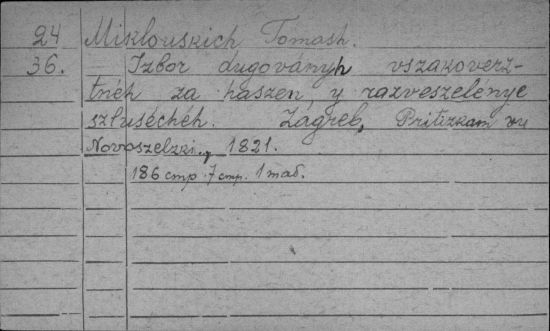 24 Miklouskich Tomash.
36. Izbor dugoványh vszakoverz-
tnéh za haszen y razveszelénye
szlusécheh. Zágreb, Pritizkam vu
Novoszelzki.. 1821.
186 стр. 7 стр. 1 таб.